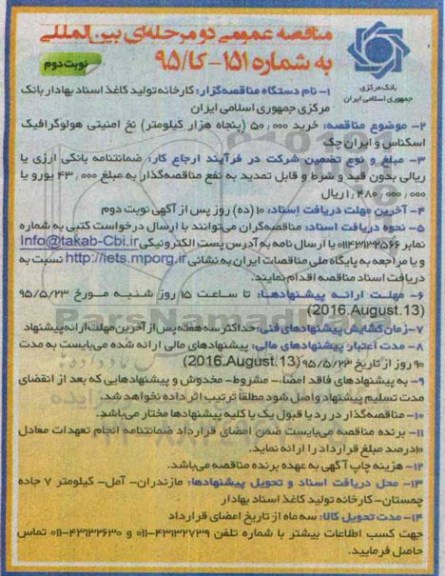 مناقصه عمومی دو مرحله‌ای بین‌المللی
به شماره ۱۵۱-کا/۹۵
نوبت دوم
بانک مرکزی
جمهوری اسلامی ایران
۱- نام دستگاه مناقصه‌گزار: کارخانه تولید کاغذ اسناد بهادار بانک
مرکزی جمهوری اسلامی ایران
۲- موضوع مناقصه: خرید ۵۰,۰۰۰ (پنجاه هزار کیلومتر) نخ امنیتی هولوگرافیک
اسکناس و ایران چک
۳- مبلغ و نوع تضمین شرکت در فرآیند ارجاع کار: ضمانتنامه بانکی ارزی یا
ریالی بدون قید و شرط و قابل تمدید به نفع مناقصه‌گذار به مبلغ ۴۳,۰۰۰ یورو یا
۱,۴۸۰,۰۰۰,۰۰۰ ریال
۴- آخرین مهلت دریافت اسناد: ۱۰ (ده) روز پس از آگهی نوبت دوم
۵- نحوه دریافت اسناد: مناقصه‌گران می‌توانند با ارسال درخواست کتبی به شماره
نمابر ۰۱۱۴۳۱۳۲۵۶۶ یا ارسال نامه به آدرس پست الکترونیکی Info@takab-Cbi.ir
و یا مراجعه به پایگاه ملی مناقصات ایران به نشانی http://iets.mporg.ir نسبت به
دریافت اسناد مناقصه اقدام نمایند.
۶- مهلت ارائه پیشنهادها: تا ساعت ۱۵ روز شنبه مورخ ۹۵/۵/۲۳
(2016.August.13)
۷- زمان گشایش پیشنهادهای فنی: حداکثر سه هفته پس از آخرین مهلت ارائه پیشنهاد
۸- مدت اعتبار پیشنهادهای مالی: پیشنهادهای مالی ارائه شده می‌بایست به مدت
۹۰ روز از تاریخ ۹۵/۵/۲۳ (2016.August.13)
۹- به پیشنهادهای فاقد امضا- مشروط- مخدوش و پیشنهادهایی که بعد از انقضای
مدت تسلیم پیشنهاد واصل شود مطلقاً ترتیب اثر داده نخواهد شد.
۱۰- مناقصه‌گذار در رد یا قبول یک یا کلیه پیشنهادها مختار می‌باشد.
۱۱- برنده مناقصه می‌بایست ضمن امضای قرارداد ضمانتنامه انجام تعهدات معادل
۱۰درصد مبلغ قرارداد را ارائه نماید.
۱۲- هزینه چاپ آگهی به عهده برنده مناقصه می‌باشد.
۱۳- محل دریافت اسناد و تحویل پیشنهادها: مازندران- آمل- کیلومتر ۷ جاده
چمستان- کارخانه تولید کاغذ اسناد بهادار
۱۴- مدت تحویل کالا: سه ماه از تاریخ امضای قرارداد
جهت کسب اطلاعات بیشتر با شماره تلفن ۴۳۱۳۲۷۳۹-۰۱۱ و ۴۳۱۳۲۶۳۰-۰۱۱ تماس
حاصل فرمایید.